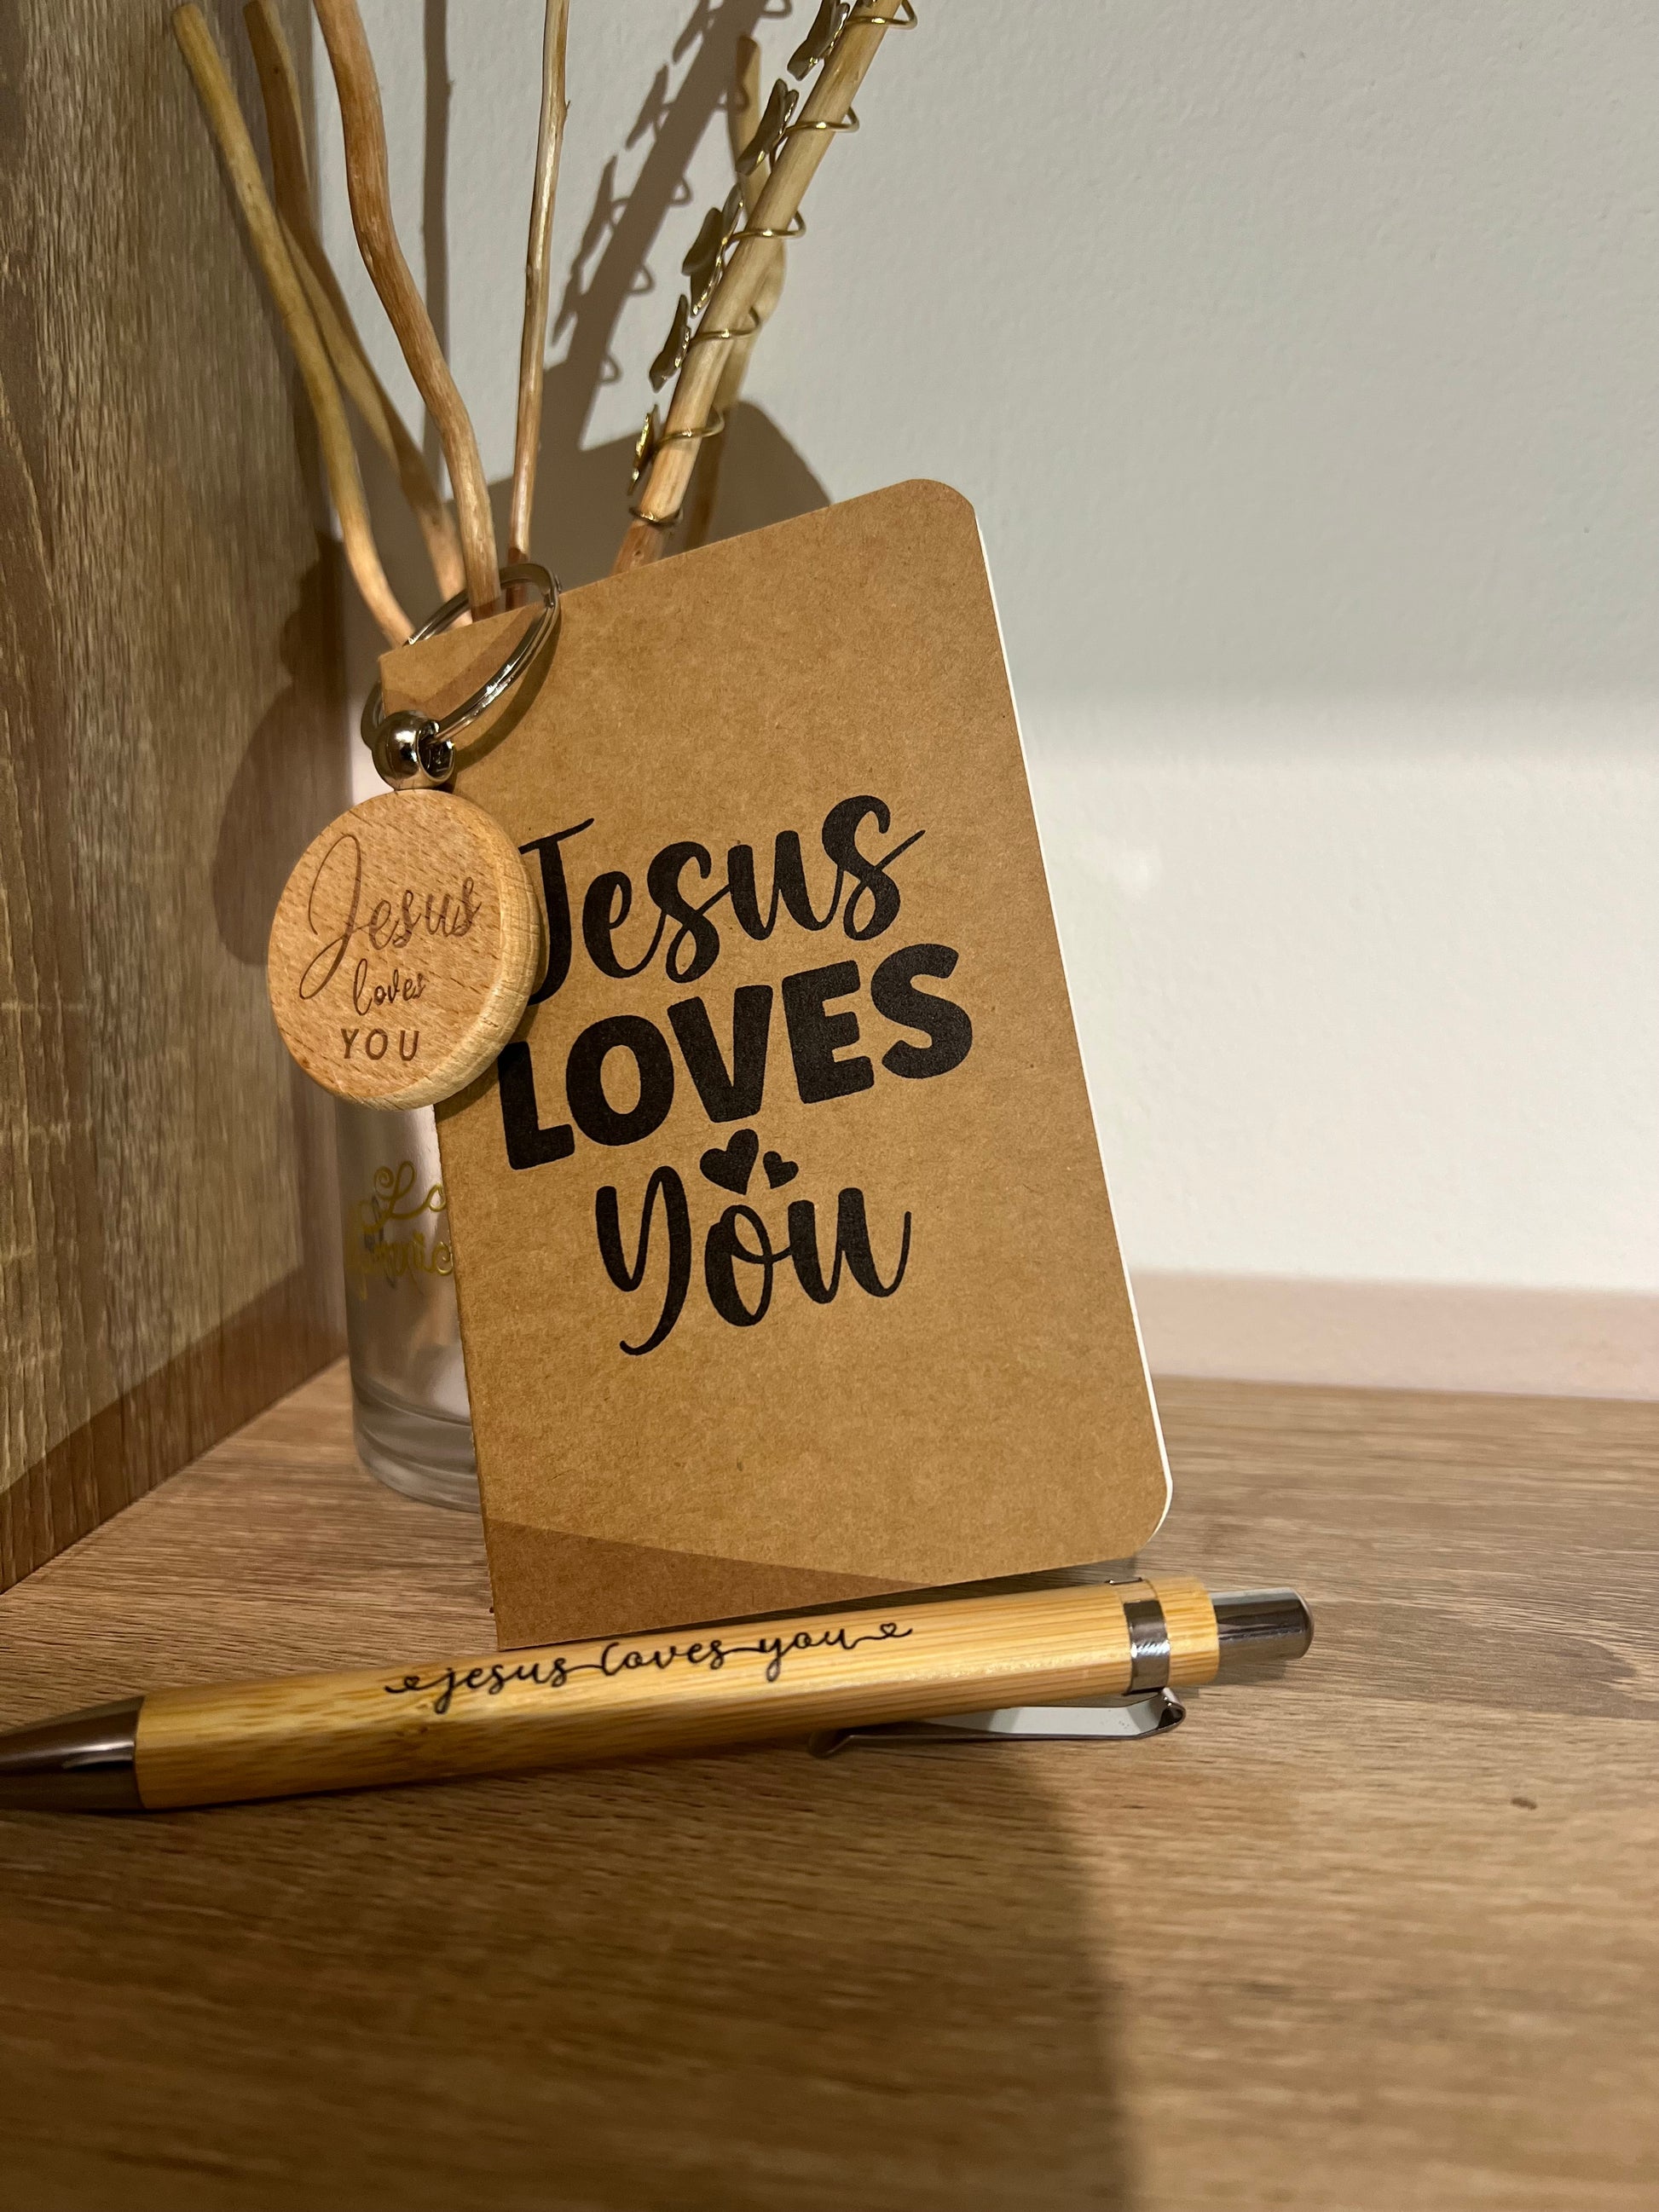 Jesus
loves
YOU
Jesus
LOVES
You
jesus loves you